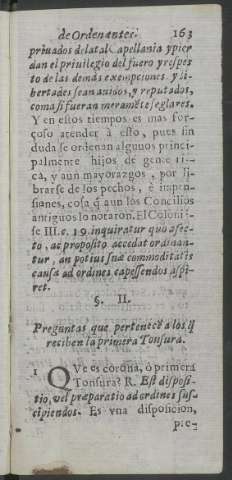 de Ordenantes. 163
priuados de la tal Capellania y pier
dan el priuilegio del fuero y respe­to
to de las demás exempciones y li-
bertades sean auidos, y reputados,
como si fueran meramẽte seglares.
Y en estos tiempos es mas for-
çoso atender à esto, pues sin
duda se ordenan algunos princi-
palmente hijos de gente ri-
ca, y aun mayorazgos, por li-
brarse de los pechos, è impen-
sianes, cosa q̃ aun los Concilios
antiguos lo notaron. El Coloni-
se III. c. 19 inquiratur quo afec-
to, ac proposito accedat ordinan-
tur, an potius suæ commoditatis
causa ad ordines capessendos aspi-
ret.
§. II.
Preguntas que pertenecẽ a los q̃
reciben la primera Tonsura.
1 QVe es corona, ò primera
Tonsura? R. Est disposi-
tio, vel preparatio ad ordines sus-
cipiendos. Es vna disposicion,
pre-